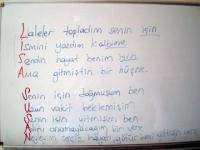 Laleler topladım senin için
İsmini yazdım kalbime
Sendin hayat benim
Ama gitmiştin bir hüzne.
Senin için doğmuşum ben
Uzun vakit beklemişim
Senin için yitirilen ben
Adını anamayacağım bir yere